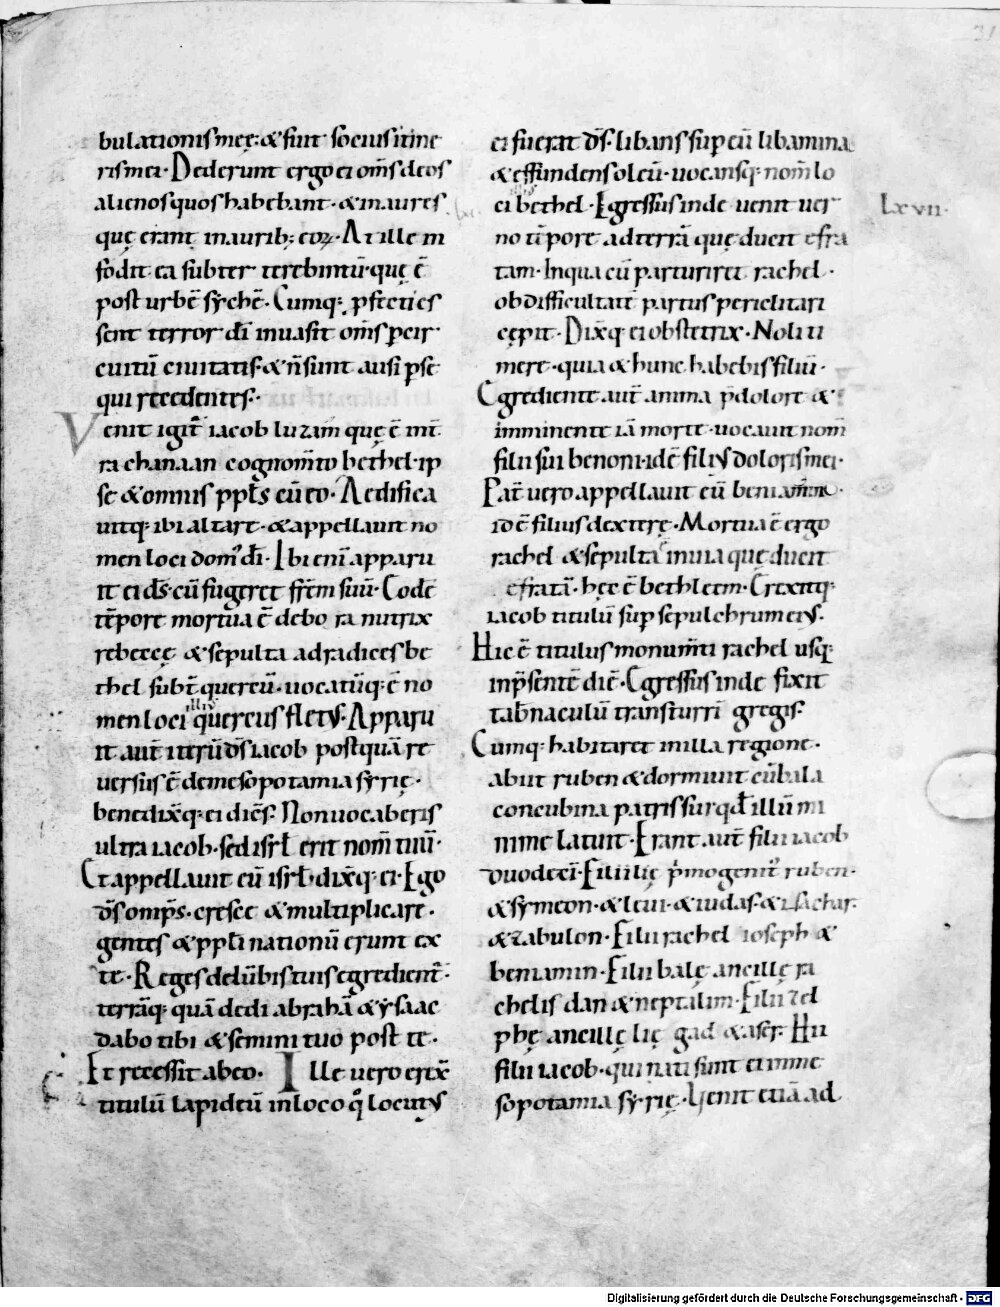 bulationis meę· & fuit socius itine
ris mei· Dederunt ergo ei om̄s deos
alienos quos habebant· & inaures
quę erant in aurib; eoꝝ· At ille in
fodit ea subter terebintū· quę ē
post urbē sẏchē· Cumq; pfecti es
sent terror dī inuasit om̄s per cir
cuitū ciuitatis· & n̄ sunt ausi pse
qui recedentes·
Venit igit̄ iacob luzam quę ē in t̄
ra chanaan cognom̄to bethel· ip
se & omnis ppl̄s cū eo· Aedifica
uitq; ibi altare· & appellauit no
men loci dom' dī· Ibi enī apparu
it ei ds̄· cū fugeret fr̄em suū· Eodē
tēpore mortua ē debora nutrix
rebeccę & sepulta ad radices be
thel subt̄ quercū· uocatūq; ē no
men loci illi' quercus fletus· Apparu
it aut̄ iterū ds̄ iacob postquā re
uersus ē de mesopotamia sẏrię·
benedix̄q; ei dicēs· Non uocaberis
ultra iacob· sed isrl̄ erit nom̄ tuū·
Et appellauit eū isrl̄· dix̄q; ei· Ego
ds̄ omps̄· cresce & multiplicare·
gentes & ppl̄i nationū erunt ex
te· Reges de lūbis tuis egredient̄·
terrāq; quā dedi abrahā & ẏsaac
dabo tibi & semini tuo post te·
Et recessit ab eo· Ille uero erex̄
titulū lapideū in loco q̄ locutus
ei fuerat ds̄· libans sup eū libamina
& effundens oleū· uocansq; nom̄ lo
ci illi' bethel· Egressus inde uenit uer
Lxvii·
no tēpore ad terrā quę ducit efra
tam· In qua cū parturiret rachel·
ob difficultatē partus periclitari
cępit· Dix̄q; ei obstetrix· Noli ti
mere· quia & hunc habebis filiū·
Egrediente aut̄ anima p̄ dolore &
imminente iā morte· uocauit nom̄
filii sui benoni· id ē filius doloris mei·
Pat̄ uero appellauit eū beniamin·
id ē filius dexterę· Mortua ē ergo
rachel & sepulta in uia quę ducit
efratā· hęc ē bethleem· Erexitq;
iacob titulū sup sepulchrum eius·
Hic ē titulus monum̄ti rachel usq;
in p̄sentē diē· Egressus inde fixit
tab̄naculū trans turrī gregis·
Cumq; habitaret in illa regione·
abiit ruben & dormiuit cū bala
concubina patris sui· qđ illū mi
nime latuit· Erant aut̄ filii iacob
duodecī· Filii lię p̄mogenit' ruben·
& sẏmeon· & leui· & iudas· & isachar
& zabulon· Filii rachel ioseph &
beniamin· Filii balę ancillę ra
chelis dan & neptalim· Filii zel
phę ancillę lię gad & aser· Hii
filii iacob· qui nati sunt ei in me
sopotamia sẏrię· Uenit etiā ad
Digitalisierung gefördert durch die Deutsche Forschungsgemeinschaft - DFG